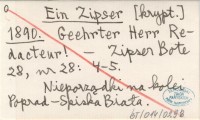 Ein Zipser [krypt.]
1890. Geehrter Herr Re-
dacteur! — Zipser Bote
28, nr 28: 4-5.
Nieporządki na kolei
Poprad-Spiska Biała.